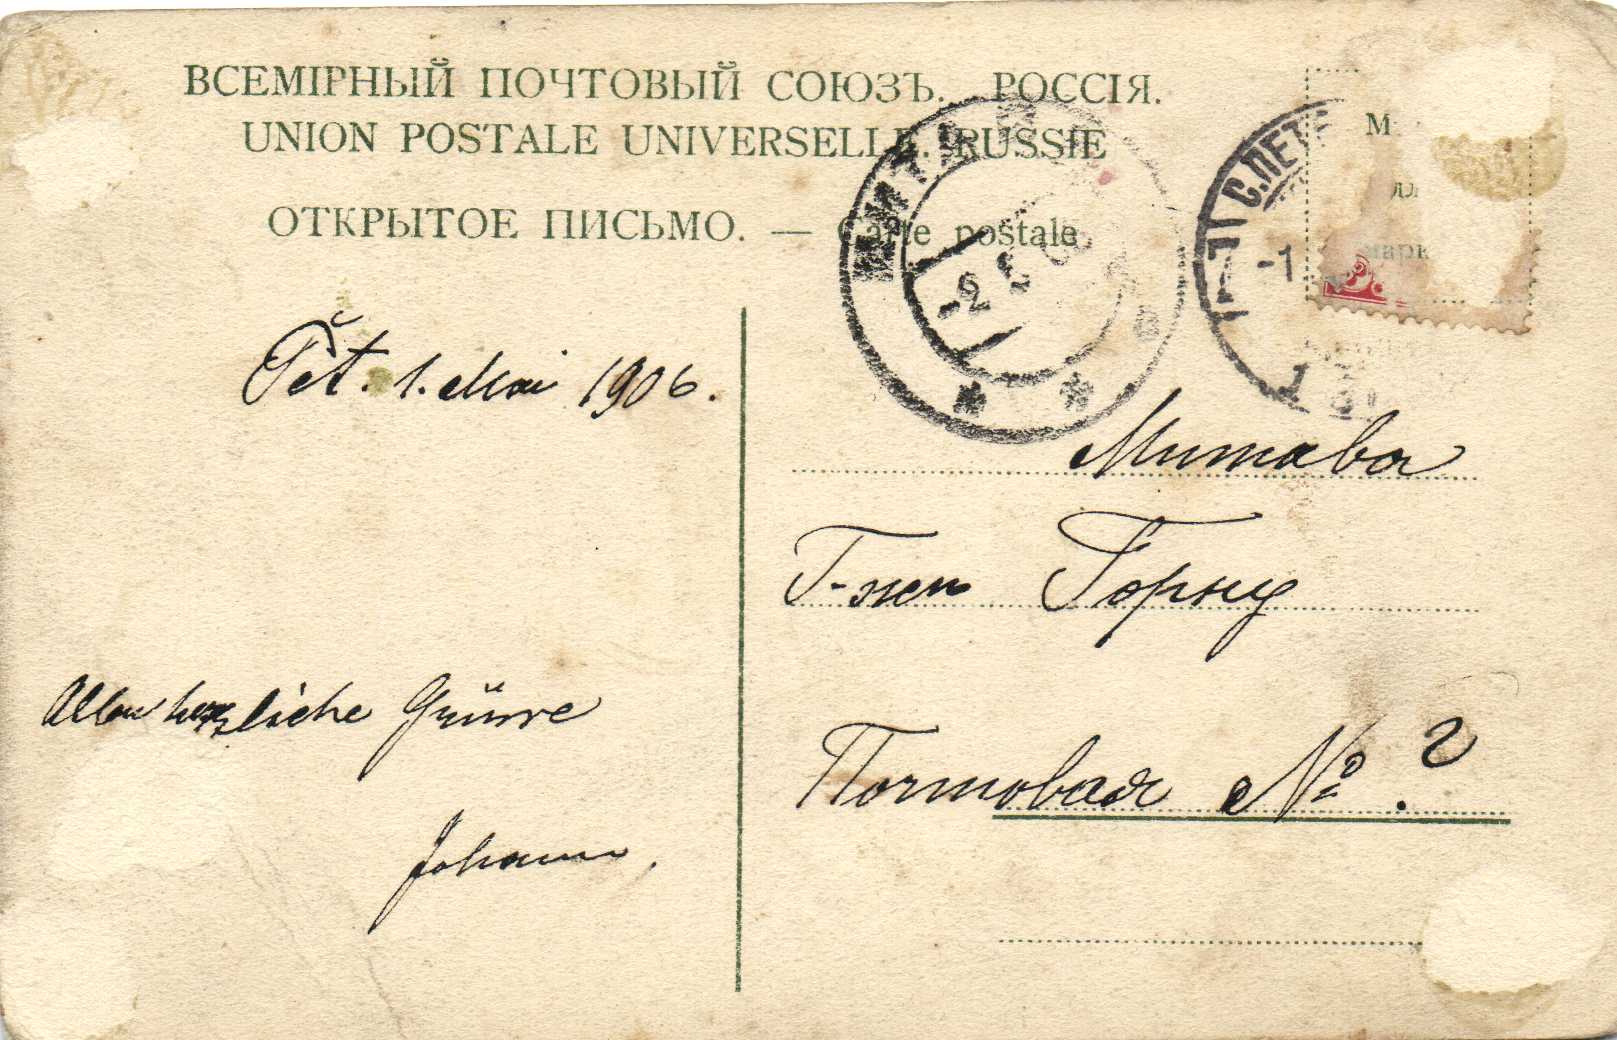 ВСЕМІРНЫЙ ПОЧТОВЫЙ СОЮЗЪ. РОССІЯ.
UNION POSTALE UNIVERSELLE. RUSSIE
ОТКРЫТОЕ ПИСЬМО. — Carte postale
С.ПЕТЕ
-1
1
МИТАВА
-2 5 06
Pet. 1. Mai 1906.
Allen herzliche Grüsse
Johann.
Митава
Г-жѣ Горну
Почтовая №. 2